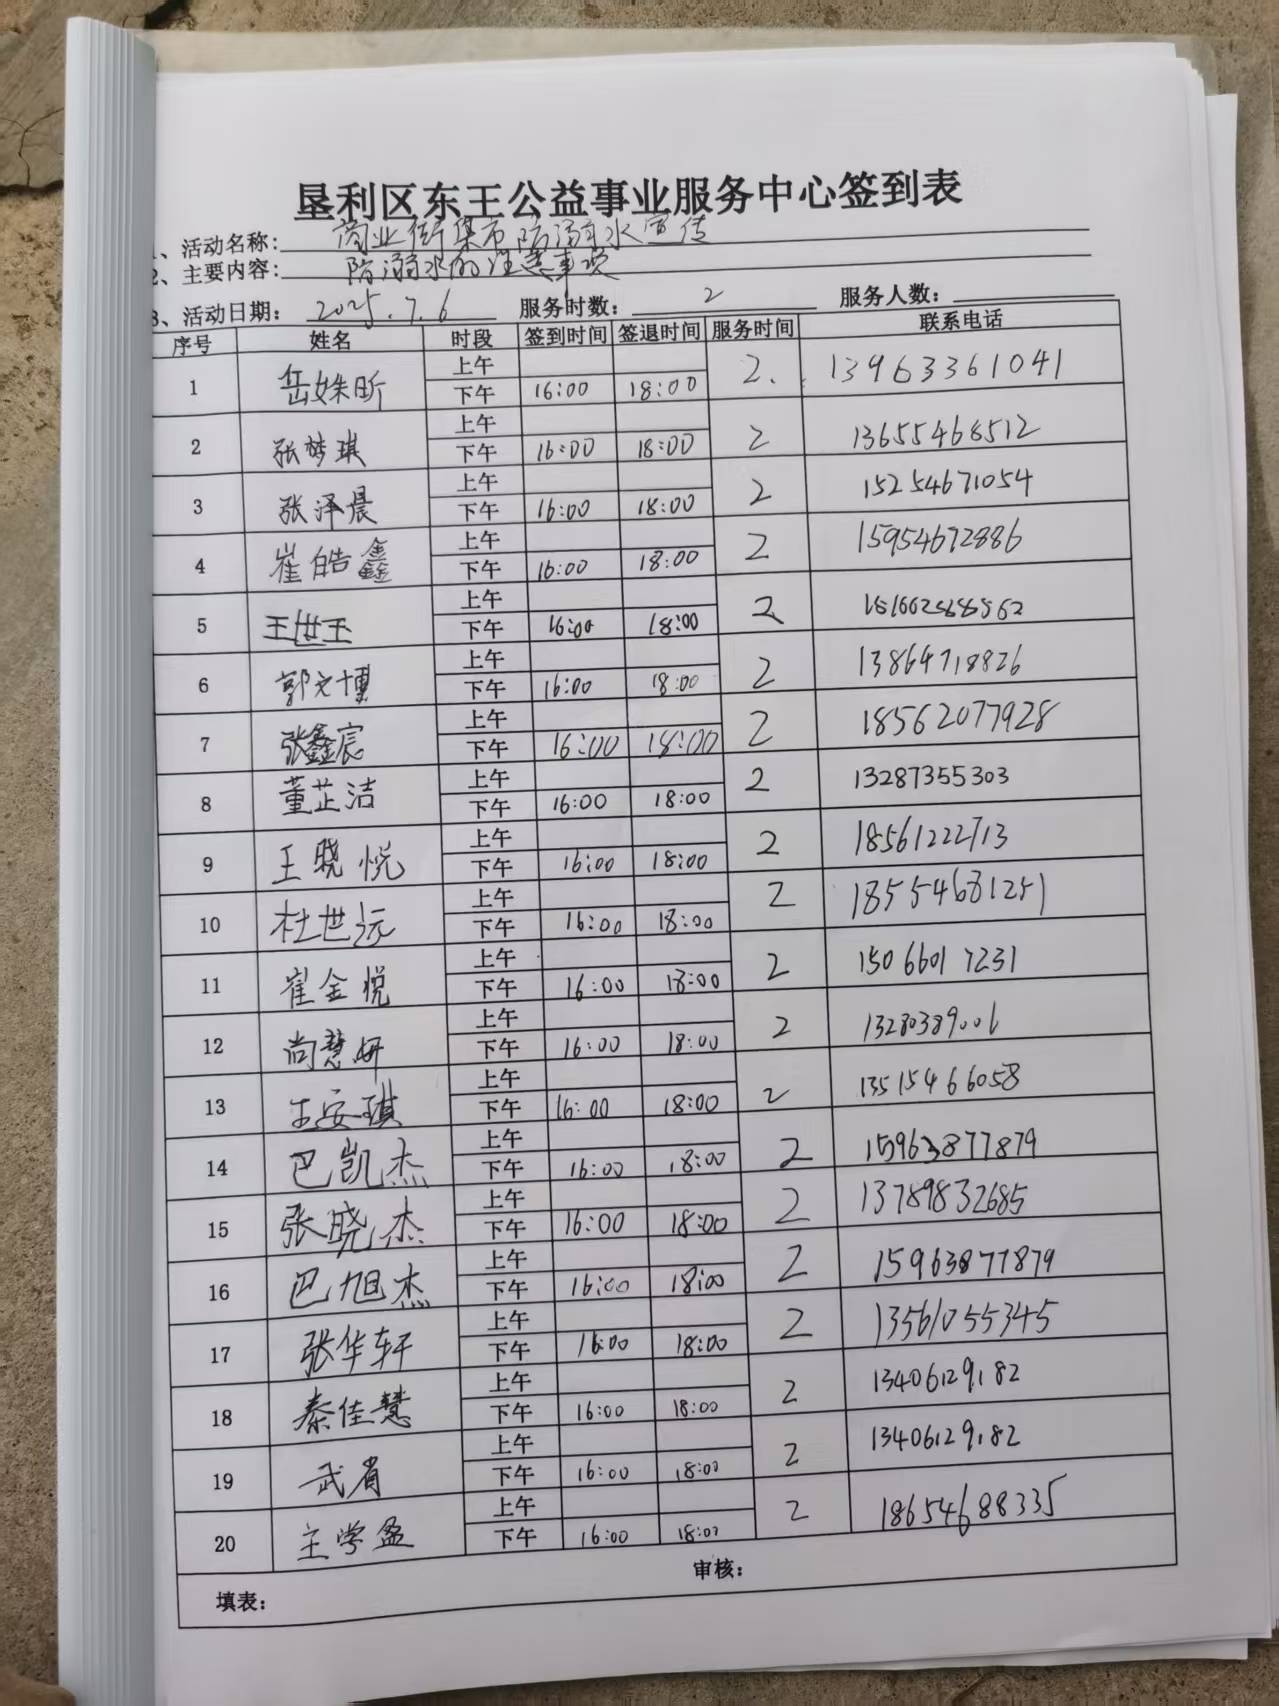 垦利区东王公益事业服务中心签到表
、活动名称: 商业街集市防溺水宣传
2、主要内容: 防溺水的注意事项
3、活动日期: 2025.7.6 服务时数: 2 服务人数:
序号 姓名 时段 签到时间 签退时间 服务时间 联系电话
上午
1 岳姝昕 下午 16:00 18:00 2. 13963361041
上午
2 张梦琪 下午 16:00 18:00 2 13655468512
上午
3 张泽晨 下午 16:00 18:00 2 15254671054
上午
4 崔皓鑫 下午 16:00 18:00 2 15954672886
上午
5 王世玉 下午 16:00 18:00 2
上午
6 郭文博 下午 16:00 18:00 2 13864718826
上午
7 张鑫宸 下午 16:00 18:00 2 18562077928
上午
8 董芷洁 下午 16:00 18:00 2 13287355303
上午
9 王晓悦 下午 16:00 18:00 2 18561222713
上午
10 杜世沅 下午 16:00 18:00 2 18554681251
上午
11 崔金悦 下午 16:00 18:00 2 15066017231
上午
12 尚慧妍 下午 16:00 18:00 2 13280389006
上午
13 王安琪 下午 16:00 18:00 2 13515466058
上午
14 巴凯杰 下午 16:00 18:00 2 15963877879
上午
15 张晓杰 下午 16:00 18:00 2 13789832685
上午
16 巴旭杰 下午 16:00 18:00 2 15963877879
上午
17 张华轩 下午 16:00 18:00 2 13561055345
上午
18 秦佳慧 下午 16:00 18:00 2 13406129182
上午
19 武省 下午 16:00 18:00 2 13406129182
上午
20 王学盈 下午 16:00 18:00 2 18654688335
填表: 审核: